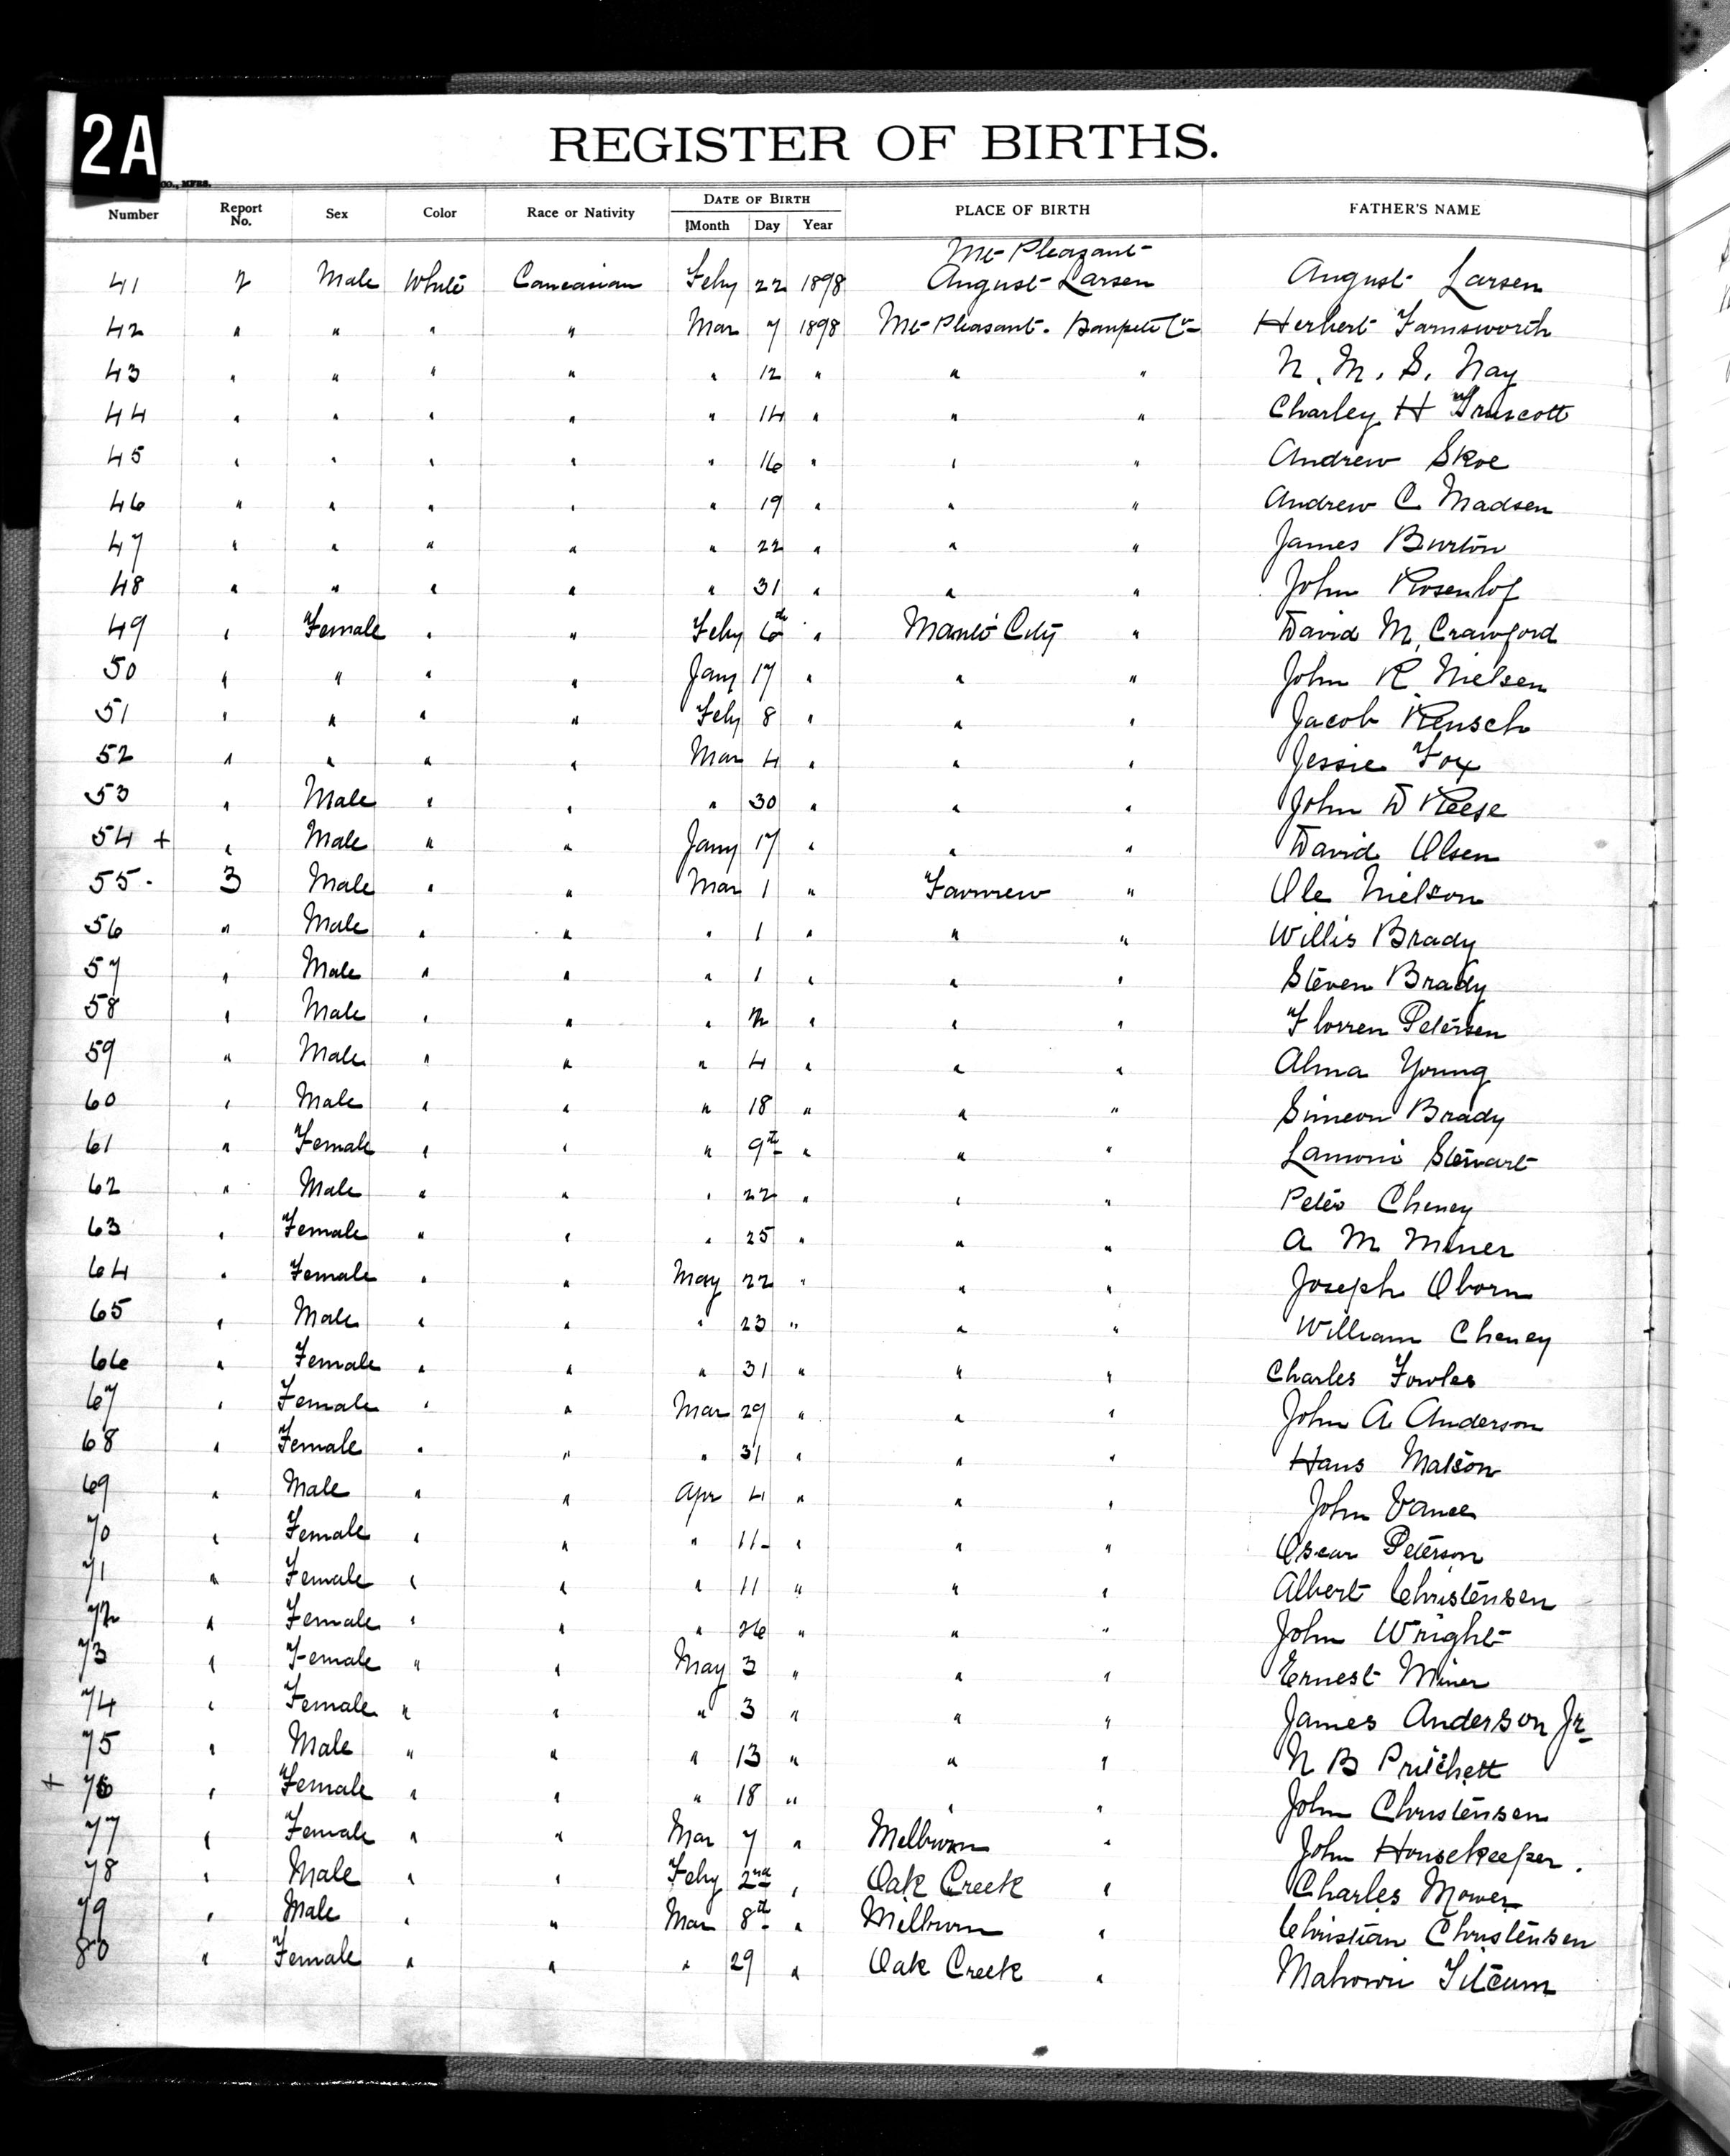 2A
REGISTER OF BIRTHS.
CO., MFRS.
Number Report No. Sex Color Race or Nativity DATE OF BIRTH Month Day Year PLACE OF BIRTH FATHER'S NAME
Mt Pleasant
41 2 Male White Caucasian Feby 22 1898 August Larsen August Larsen
42 " " " " Mar 7 1898 Mt Pleasant. Sanpete Co Herbert Farnsworth
43 " " " " " 12 " " " N. M. S. Nay
44 " " " " " 14 " " " Charley H Truscott
45 " " " " " 16 " " " Andrew Skoe
46 " " " " " 19 " " " Andrew C Madsen
47 " " " " " 22 " " " James Burton
48 " " " " " 31 " " " John Rosenlof
49 " Female " " Feby 6th " Manti City " David M. Crawford
50 " " " " Jany 17 " " " John R Nielsen
51 " " " " Feby 8 " " " Jacob Keusch
52 " " " " Mar 4 " " " Jessie Fox
53 " Male " " " 30 " " " John D Reese
54 + " Male " " Jany 17 " " " David Olsen
55. 3 Male " " Mar 1 " Fairview " Ole Nielson
56 " Male " " " 1 " " " Willis Brady
57 " Male " " " 1 " " " Steven Brady
58 " Male " " " 2 " " " Petersen
59 " Male " " " 4 " " " Alma Young
60 " Male " " " 18 " " " Simeon Brady
61 " Female " " " 9th " " " Lamoni Stewart
62 " Male " " " 22 " " " Peter Cheney
63 " Female " " " 25 " " " A M Miner
64 " Female " " May 22 " " " Joseph Oborn
65 " Male " " " 23 " " " William Cheney
66 " Female " " " 31 " " " Charles Fowles
67 " Female " " Mar 29 " " " John A Anderson
68 " Female " " " 31 " " " Hans Matson
69 " Male " " Apr 4 " " " John Vance
70 " Female " " " 11 " " " Oscar Peterson
71 " Female " " " 11 " " " Albert Christensen
72 " Female " " " 26 " " " John Wright
73 " Female " " May 3 " " " Ernest Miner
74 " Female " " " 3 " " " James Anderson Jr
75 " Male " " " 13 " " " N B Pritchett
+ 76 " Female " " " 18 " " " John Christensen
77 " Female " " Mar 7 " Milburn " John Housekeeper.
78 " Male " " Feby 2nd " Oak Creek " Charles Mower
79 " Male " " Mar 8th " Milburn " Christian Christensen
80 " Female " " " 29 " Oak Creek "